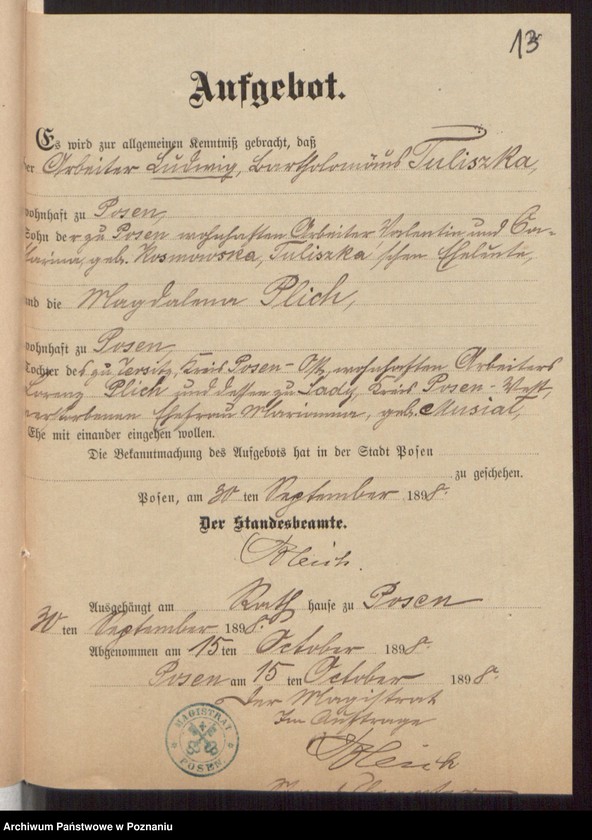 13
Aufgebot.
Es wird zur allgemeinen Kenntniß gebracht, daß
der Arbeiter Ludwig, Bartholomäus Tuliszka,
wohnhaft zu Posen,
Sohn der zu Posen wohnhaften Arbeiter Valentin und Ca-
tarina, geb. Kosmowska, Tuliszka'schen Eheleute,
und die Magdalena Plich,
wohnhaft zu Posen,
Tochter des zu Jersitz, Kreis Posen-Ost, wohnhaften Arbeiters
Lorenz Plich und dessen zu Sady, Kreis Posen-West,
verstorbenen Ehefrau Marianna, geb. Musial,
Ehe mit einander eingehen wollen.
Die Bekanntmachung des Aufgebots hat in der Stadt Posen
zu geschehen.
Posen, am 30 ten September 1898.
Der Standesbeamte.
Ausgehängt am Rath hause zu Posen
30 ten September 1898.
Abgenommen am 15 ten October 1898.
Posen am 15 ten October 1898.
Der Magistrat
Im Auftrage
MAGISTRAT
POSEN
Archiwum Państwowe w Poznaniu